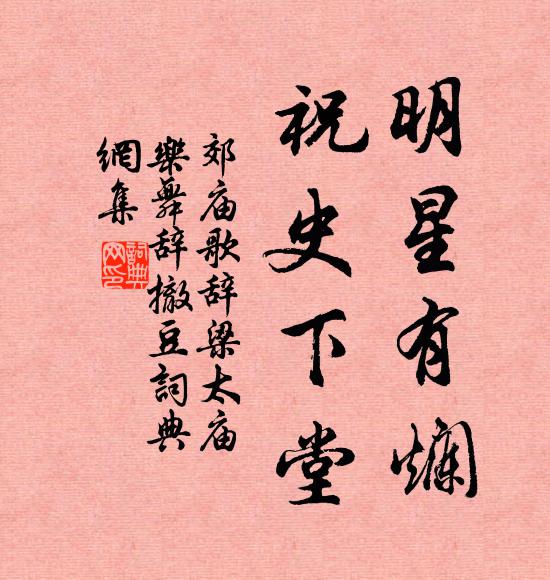 明星有爛
祝史下堂
郊庙歌辞梁太庙
樂舞辞撤豆詞典
網集
詞典
网印